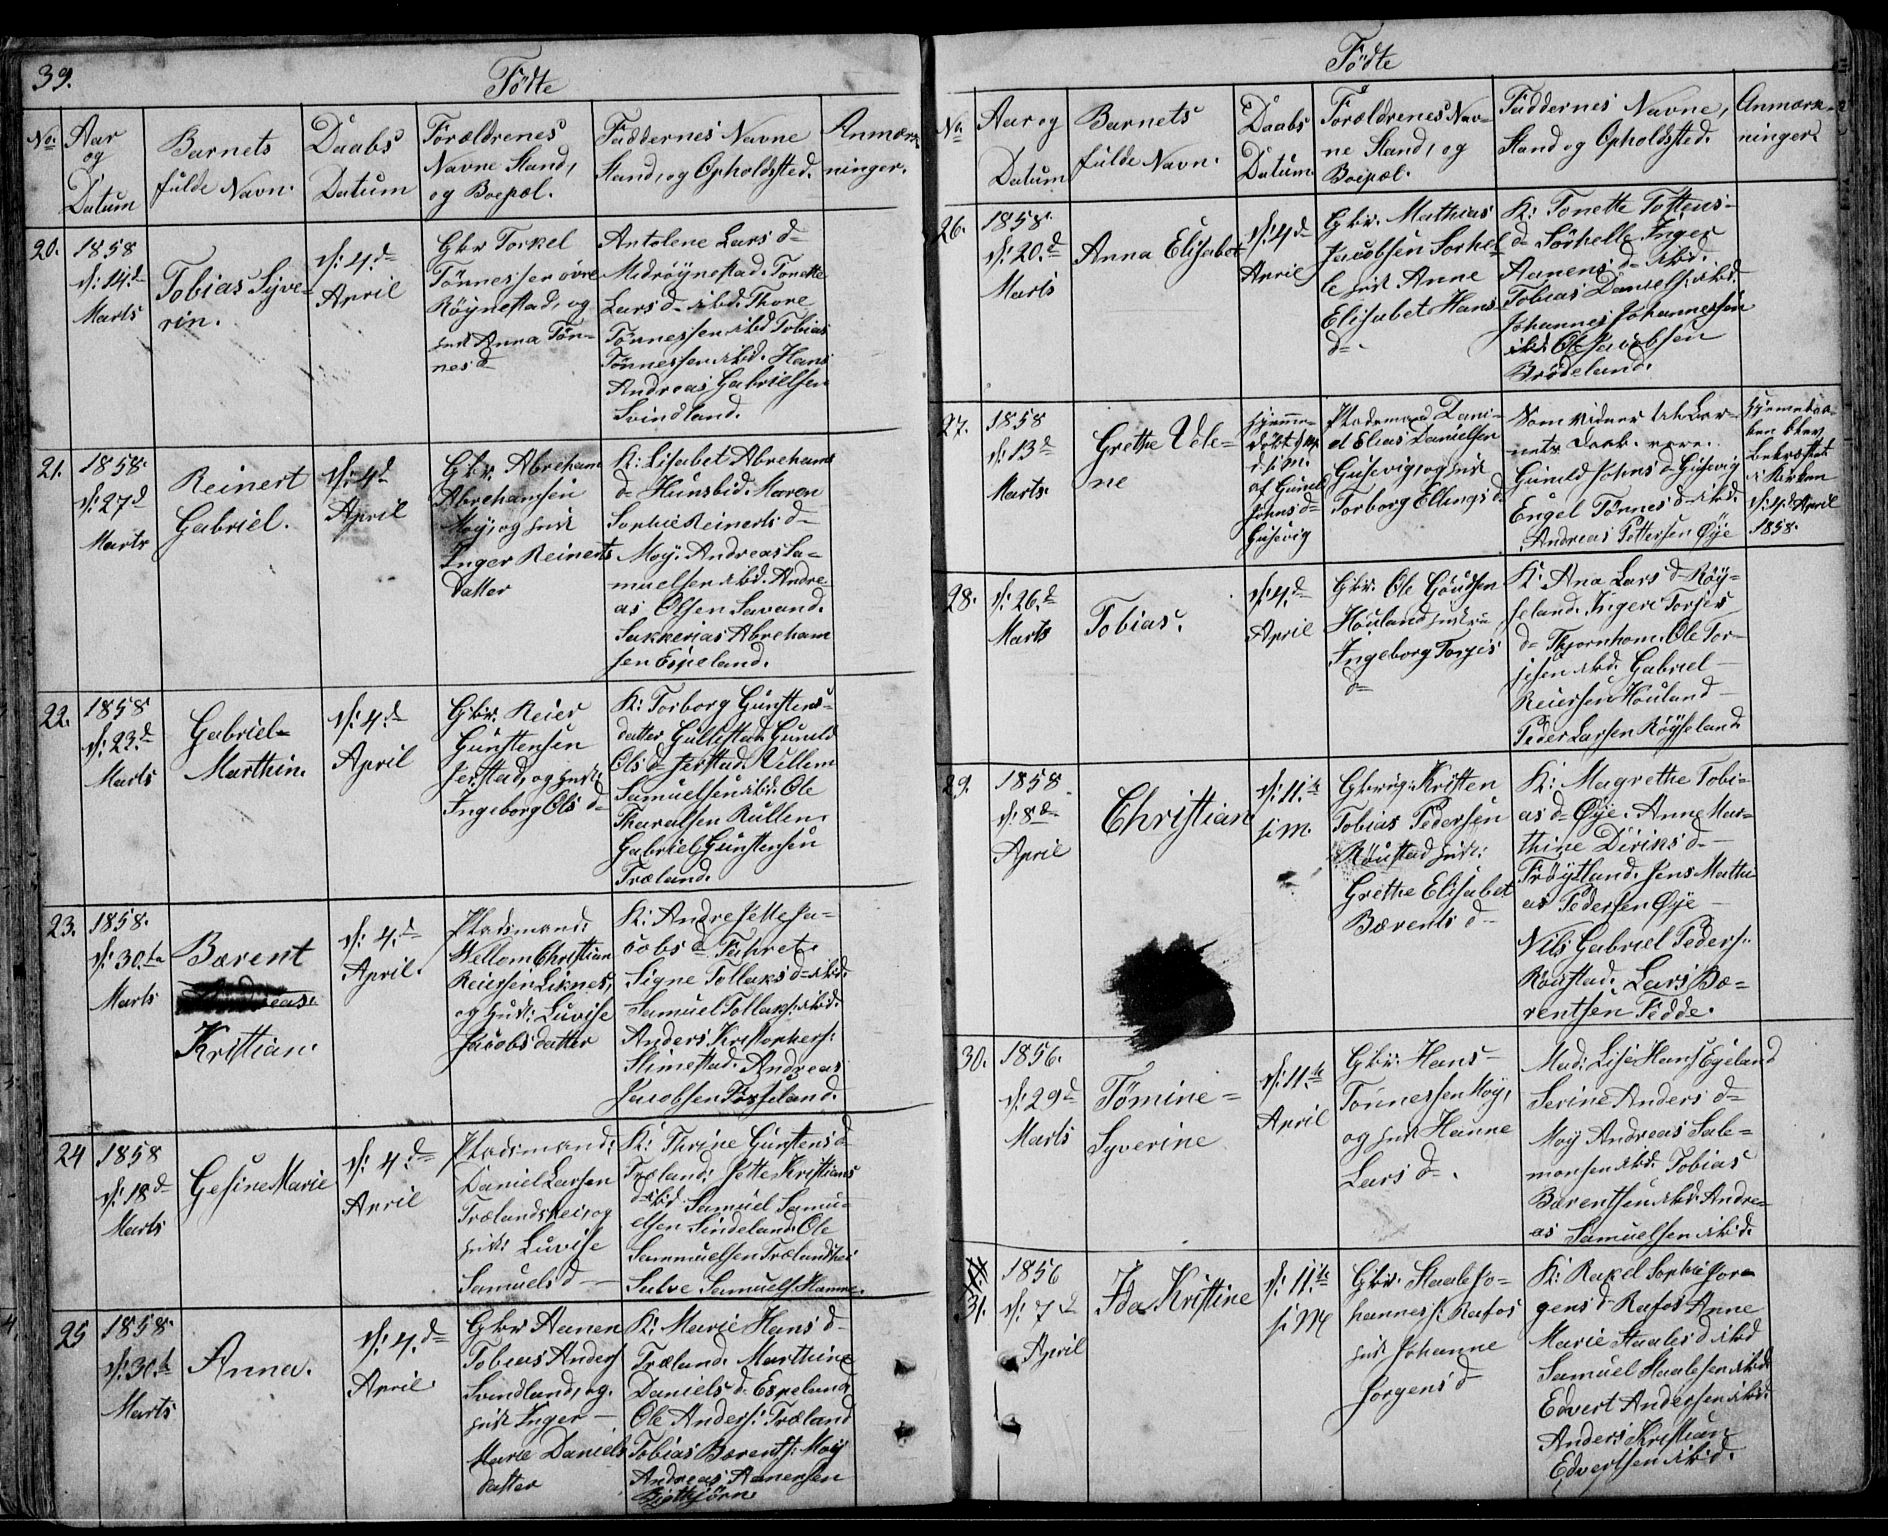 39.
Födte
No.
Aar
og
Datum
Barnets
fulde Navn.
Daabs
Datum
Forældrenes
Navne Stand,
og Boepæl.
Faddernes Navne
Stand, og Opholdsted.
Anmærk
ninger.
20.
1858
d: 14.d
Marts
Tobias Syve-
rin.
d: 4.d
April
Gbr Torkel
Tönnessen övre
Röynestad, og
Anna Tön-
nesd
Antolene Lars d
Medröynestad. Tonette
Lars d ibd. Thore
Tönnessen ibd Tobias
Tönnessen ibd. Hans
Andreas Gabrielsen
Svindland.
21.
1858.
d: 27d
Marts
Reinert
Gabriel.
d: 4d
April
Gbr. Abreham
Abrehamsen
Moÿ, og
Inger Reinerts
datter
K: Lisabet Abrehams
d Hunsbed. Maren
Sophie Reinerts d
Moÿ. Andreas Sa-
muelsen ibd. Andre
as Olsen Lavand.
Sakkerias Abreham
sen Espeland.
22.
1858
d: 23.d
Marts
Gabriel
Marthin.
d: 4.d
April
Gbr. Reier
Gunstensen
Jerstad, og
Ingeborg Ols d
K: Torborg Gunstens-
datter Gullestad Gunild
Ols d Jerstad. Villem
Samuelsen ibd. Ole
Tharalsen Rullen.
Gabriel Gunstensen
Træland.
23.
1858.
d: 30.te
Marts
Bærent
Andreas.
Kristian.
d: 4.d
April.
Pladsmand:
Wellom Christian
Reiersen Liknes,
og Luvise
Jacobs datter
K: Andre Jette Ja-
cobs d
Signe Tollaks d ibd.
Samuel Tollaks: ibd.
Anders Kristophers:
Slimestad. Andreas
Jacobsen
24
1858
d: 18d
Marts
Gesine Marie
d: 4.d
April
Pladsmand:
Daniel Larsen
Trælandshei, og
Luvise
Samuels d
K: Thrine Gunstens d
Træland: Jette Kristians
d ibd Samuel Samu-
elsen Sindeland Ole
Sammuelsen Trælandshei
Salve Samuels
25
1858.
d: 30.te
Marts
Anna.
d: 4.d
April.
Gbr Aanen
Tobias Anders
Svindland, og.
Inger
Marie Daniels
datter
K: Marie Hans d
Træland. Marthine
Daniels d. Espeland
Ole Anders: Træland
Tobias Bærents: Moÿ
Andreas Aanensen
Födte
No
Aar og
Datum
Barnets
fulde Navn.
Daabs
Datum
Forældrenes Nav-
ne Stand, og
Boepæl.
Faddernes Navne,
Stand og Opholdsted.
Anmærk-
ninger
26.
1858.
d: 20.d
Marts
Anna Elisabet
d: 4d
April
Gbr. Mathias
Jacobsen Sörhel-
le Anne
Elisabet Hans
d
K: Tonette Tollens-
d Sörhelle Inger
Aanens d ibd.
Tobias Daniels: ibd.
Johannes Johannessen
ibd. Ole Jacobsen
Brödeland.
27.
1858
d: 13d
Marts.
Grethe Vole-
ne
af Gunild
Johns d
Gusevig
Pladsmand Dani-
el Elias Danielsen
Gusevig, og
Torborg Ellings d
Som vidner
Gunild Johns d Gusevig
Engel Tönnes d ibd.
Andreas Pettersen Øÿe
blev
d: 4d April
1858.
28.
d: 26.d
Marts
Tobias.
d: 4.d
April
Gbr. Ole Goudsen
Houland
Ingeborg Torjes
d
K: Ana Lars d Röÿ-
seland. Inger Torjes
d Tjornhom. Ole Tor-
jesen ibd. Gabriel
Reiersen Houland
Peder Larsen Röÿseland
29.
1858
d: 8d
April
Christian
d: 11.te
Kristen
Tobias Pedersen
Röustad
Grethe Elisabet
Bærents d
K: Magrethe Tobi-
as d Øÿe. Anne Mar-
thine Diriks d
Tröÿtland. Jens Mathi
as Pedersen Øÿe
Nils Gabriel Peders:
Röustad. Lars Bæ-
rentsen Fedde.
30.
1856.
d: 29d
Marts
Tömine
Syverine
d: 11.te
April
Gbr: Hans
Tonnessen Moÿ,
og Hanne
Lars d.
Mad. Lise Hans Egeland
Serine Anders d
Moÿ Andreas Sale-
monsen ibd. Tobias
Bærentsen ibd. Andre-
as Samuelsen ibd.
31.
1856
d: 7d
April
Ida Kristine
d: 11.te
Gbr. Staale Jo-
hannes: Rafos
Johanne
Jorgens d
K: Rakel Sophie Jor-
gens d Rafos Anne
Marie Staales d ibd
Samuel Staalesen ibd.
Edvert Andersen ibd.
Anders Kristian
Edvertsen ibd.